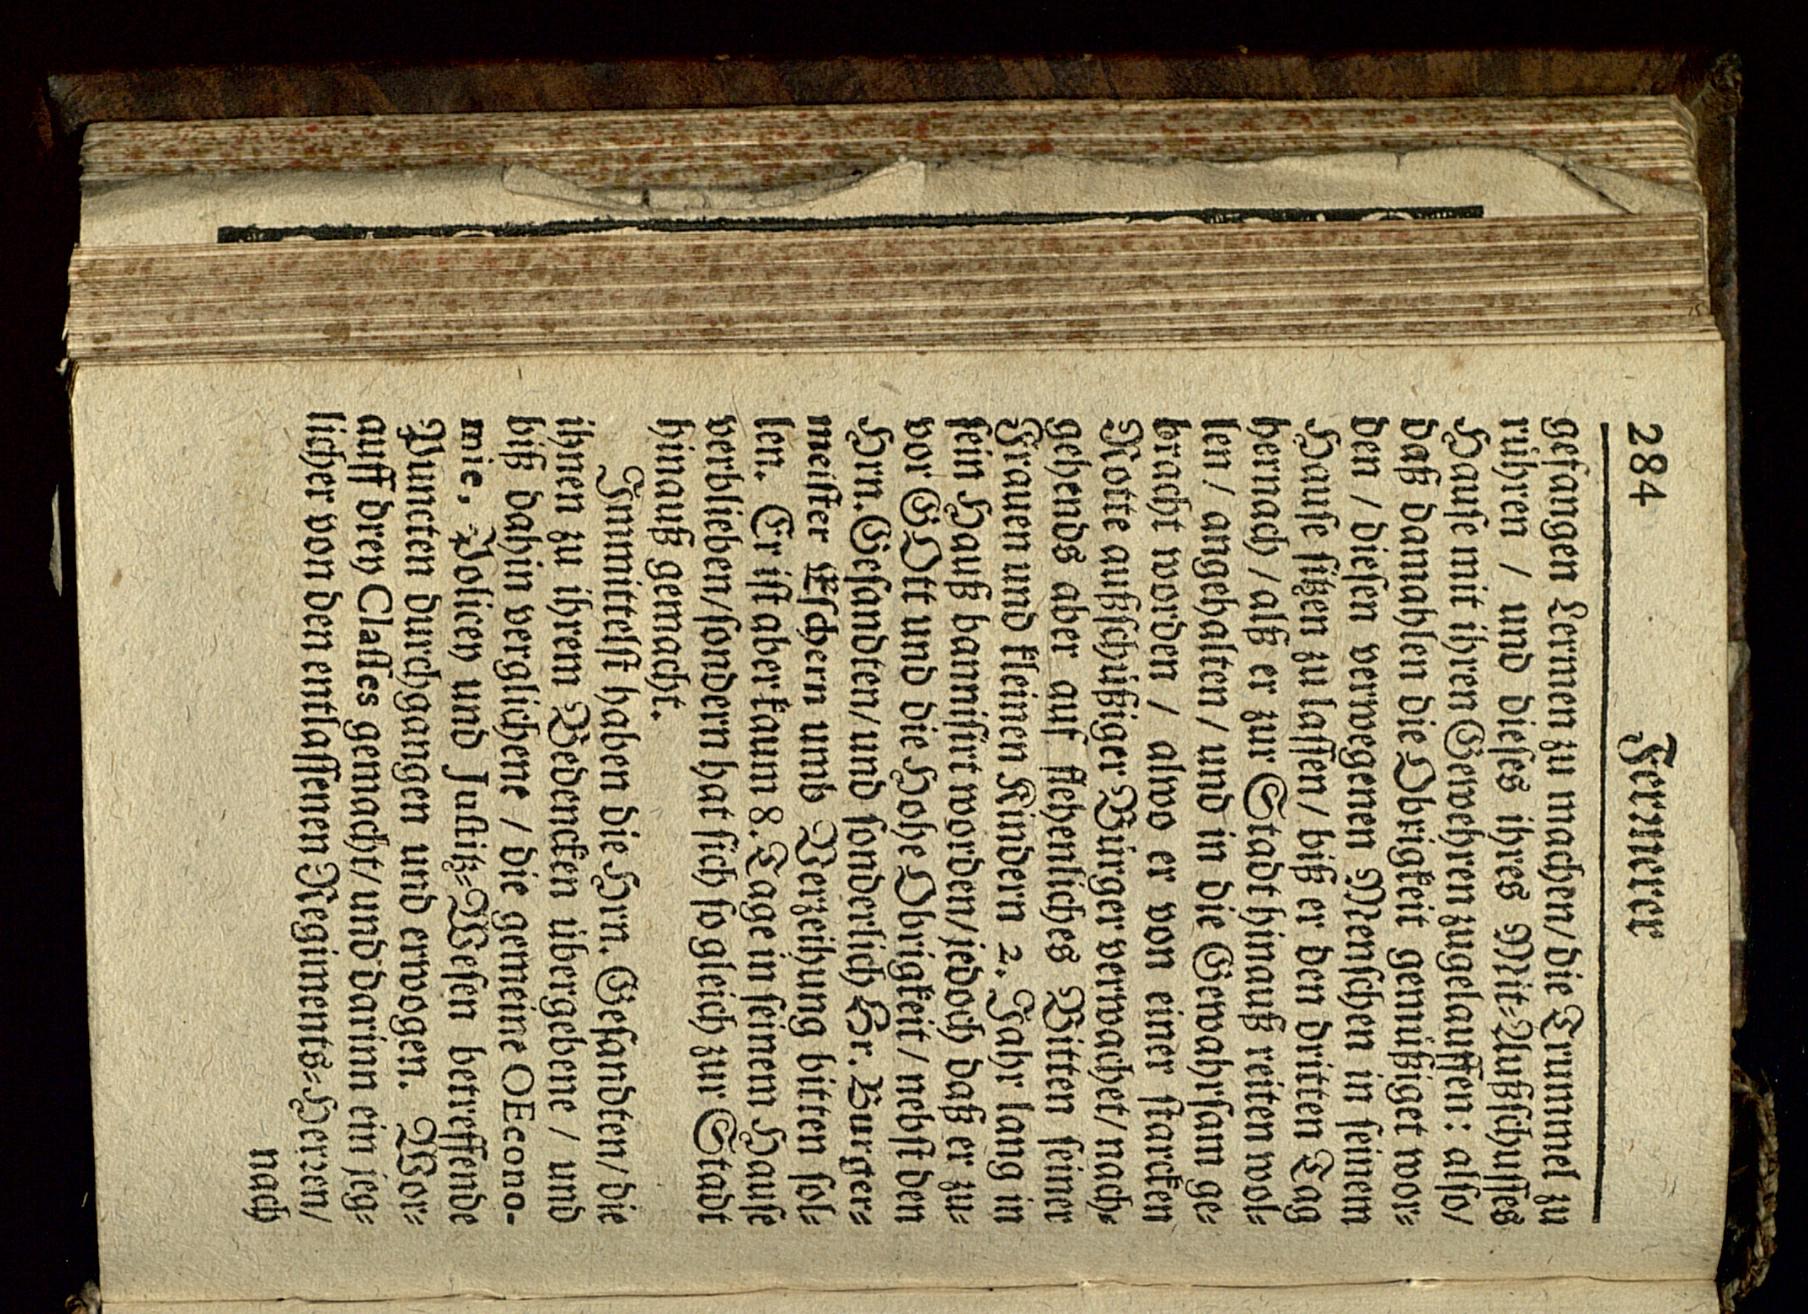 284 Fernerer
gefangen Lermen zu machen/die Trummel zu
rühren / und dieses ihres Mit-Außschusses
Hause mit ihren Gewehren zugelauffen: also/
daß damahlen die Obrigkeit gemüßiget wor-
den / diesen verwegenen Menschen in seinem
Hause sitzen zu lassen/ biß er den dritten Tag
hernach / alß er zur Stadt hinauß reiten wol-
len / angehalten/ und in die Gewahrsam ge-
bracht worden / alwo er von einer starcken
Rotte außschüßiger Bürger verwachet/ nach-
gehends aber auf flehenliches Bitten seiner
Frauen und kleinen Kindern 2. Jahr lang in
sein Hauß bannisirt worden/jedoch daß er zu-
vor GOtt und die Hohe Obrigkeit/ nebst den
Hrm. Gesandten/und sonderlich Hr. Burger-
meister Eschern umb Verzeihung bitten sol-
len. Er ist aber kaum 8. Tage in seinem Hause
verblieben/sondern hat sich so gleich zur Stadt
hinauß gemacht.
Immittelst haben die Hrn. Gesandten/ die
ihnen zu ihrem Bedencken übergebene / und
biß dahin verglichene / die gemeine OEcono-
mie, Policey und Justitz-Wesen betreffende
Puncten durchgangen und erwogen. Wor-
auff drey Classes gemacht/ und darinn ein jeg-
licher von den entlassenen Regiments-Herren/
nach